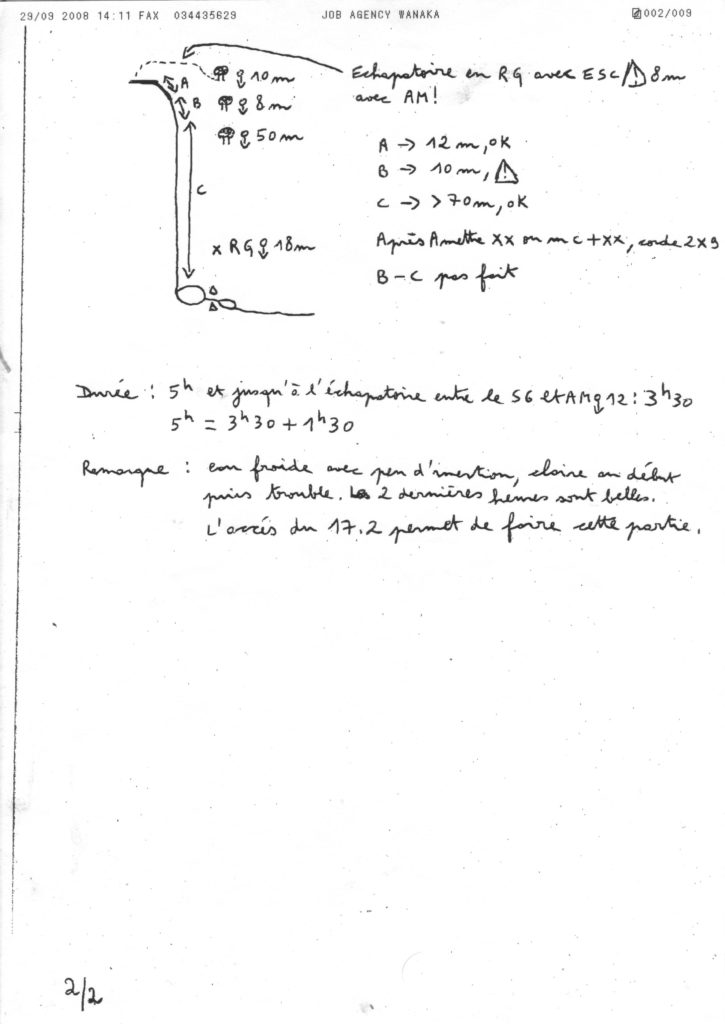 29/09 2008 14:11 FAX 034435629 JOB AGENCY WANAKA 002/009
A 10m
B 8m
50m
C
x RG 18m
Echapatoire en RG avec ESC/⚠ 8m
avec AM!
A → 12m, OK
B → 10m, ⚠
C → > 70m, OK
Après A mettre XX ou mc + XX, corde 2x9
B-C pas fait
Durée : 5h et jusqu'à l'échapatoire entre le S6 et AM 12 : 3h30
5h = 3h30 + 1h30
Remarque : eau froide avec peu d'insertion, claire au début
puis trouble. Les 2 dernières heures sont belles.
L'accés du 17.2 permet de faire cette partie.
2/2